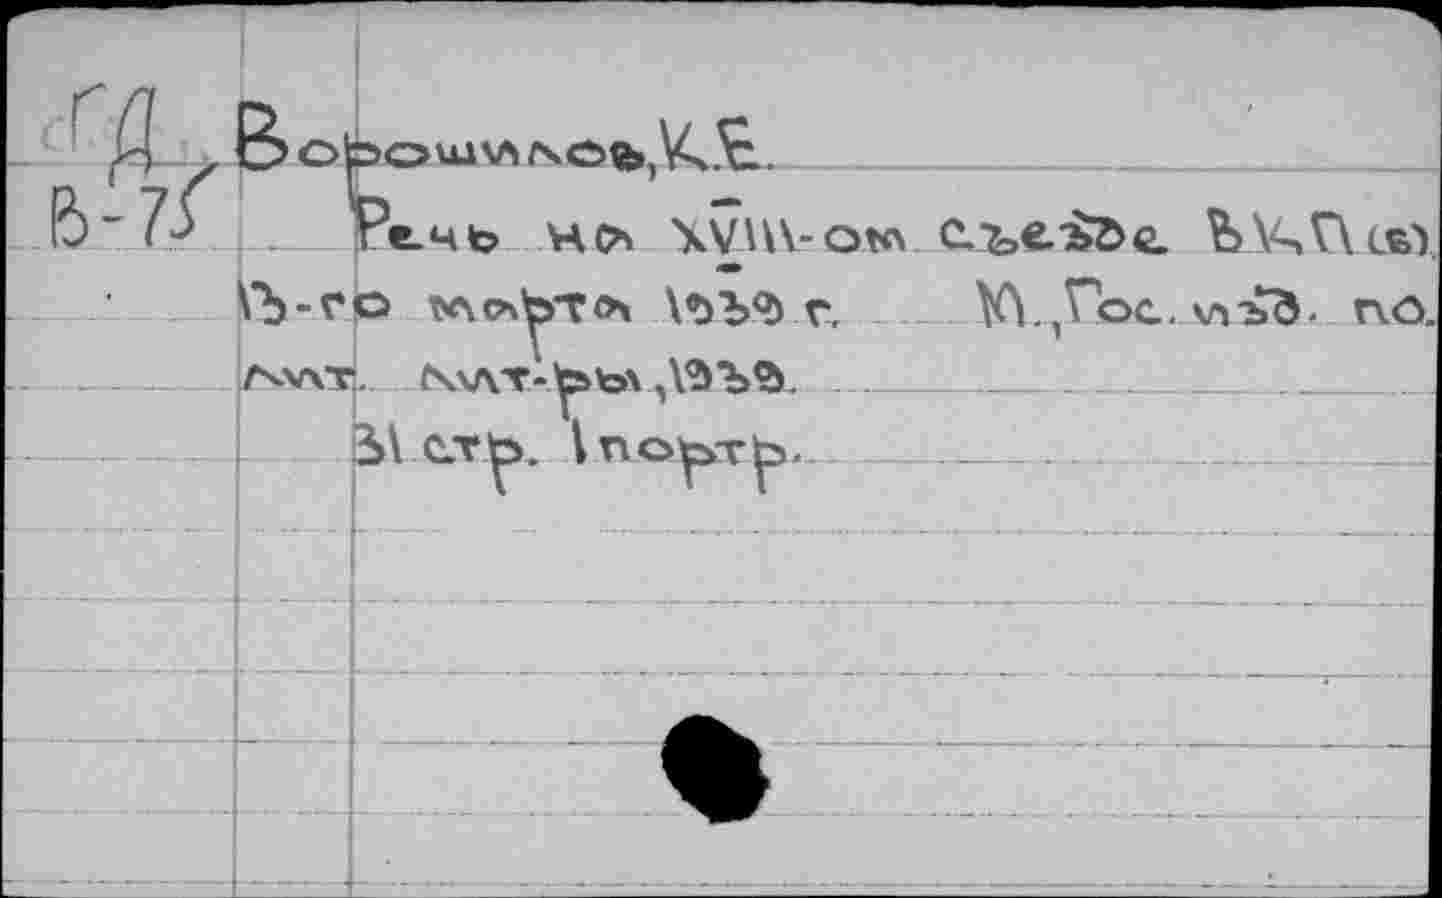 ГД Ворошилов, К.Е.
В-75 Речь на XVIII-ом съезде ВКП(б)
13-го марта 1939 г. М., Гос. изд. по.
лит. лит-ры, 1939.
31 стр. 1 портр.